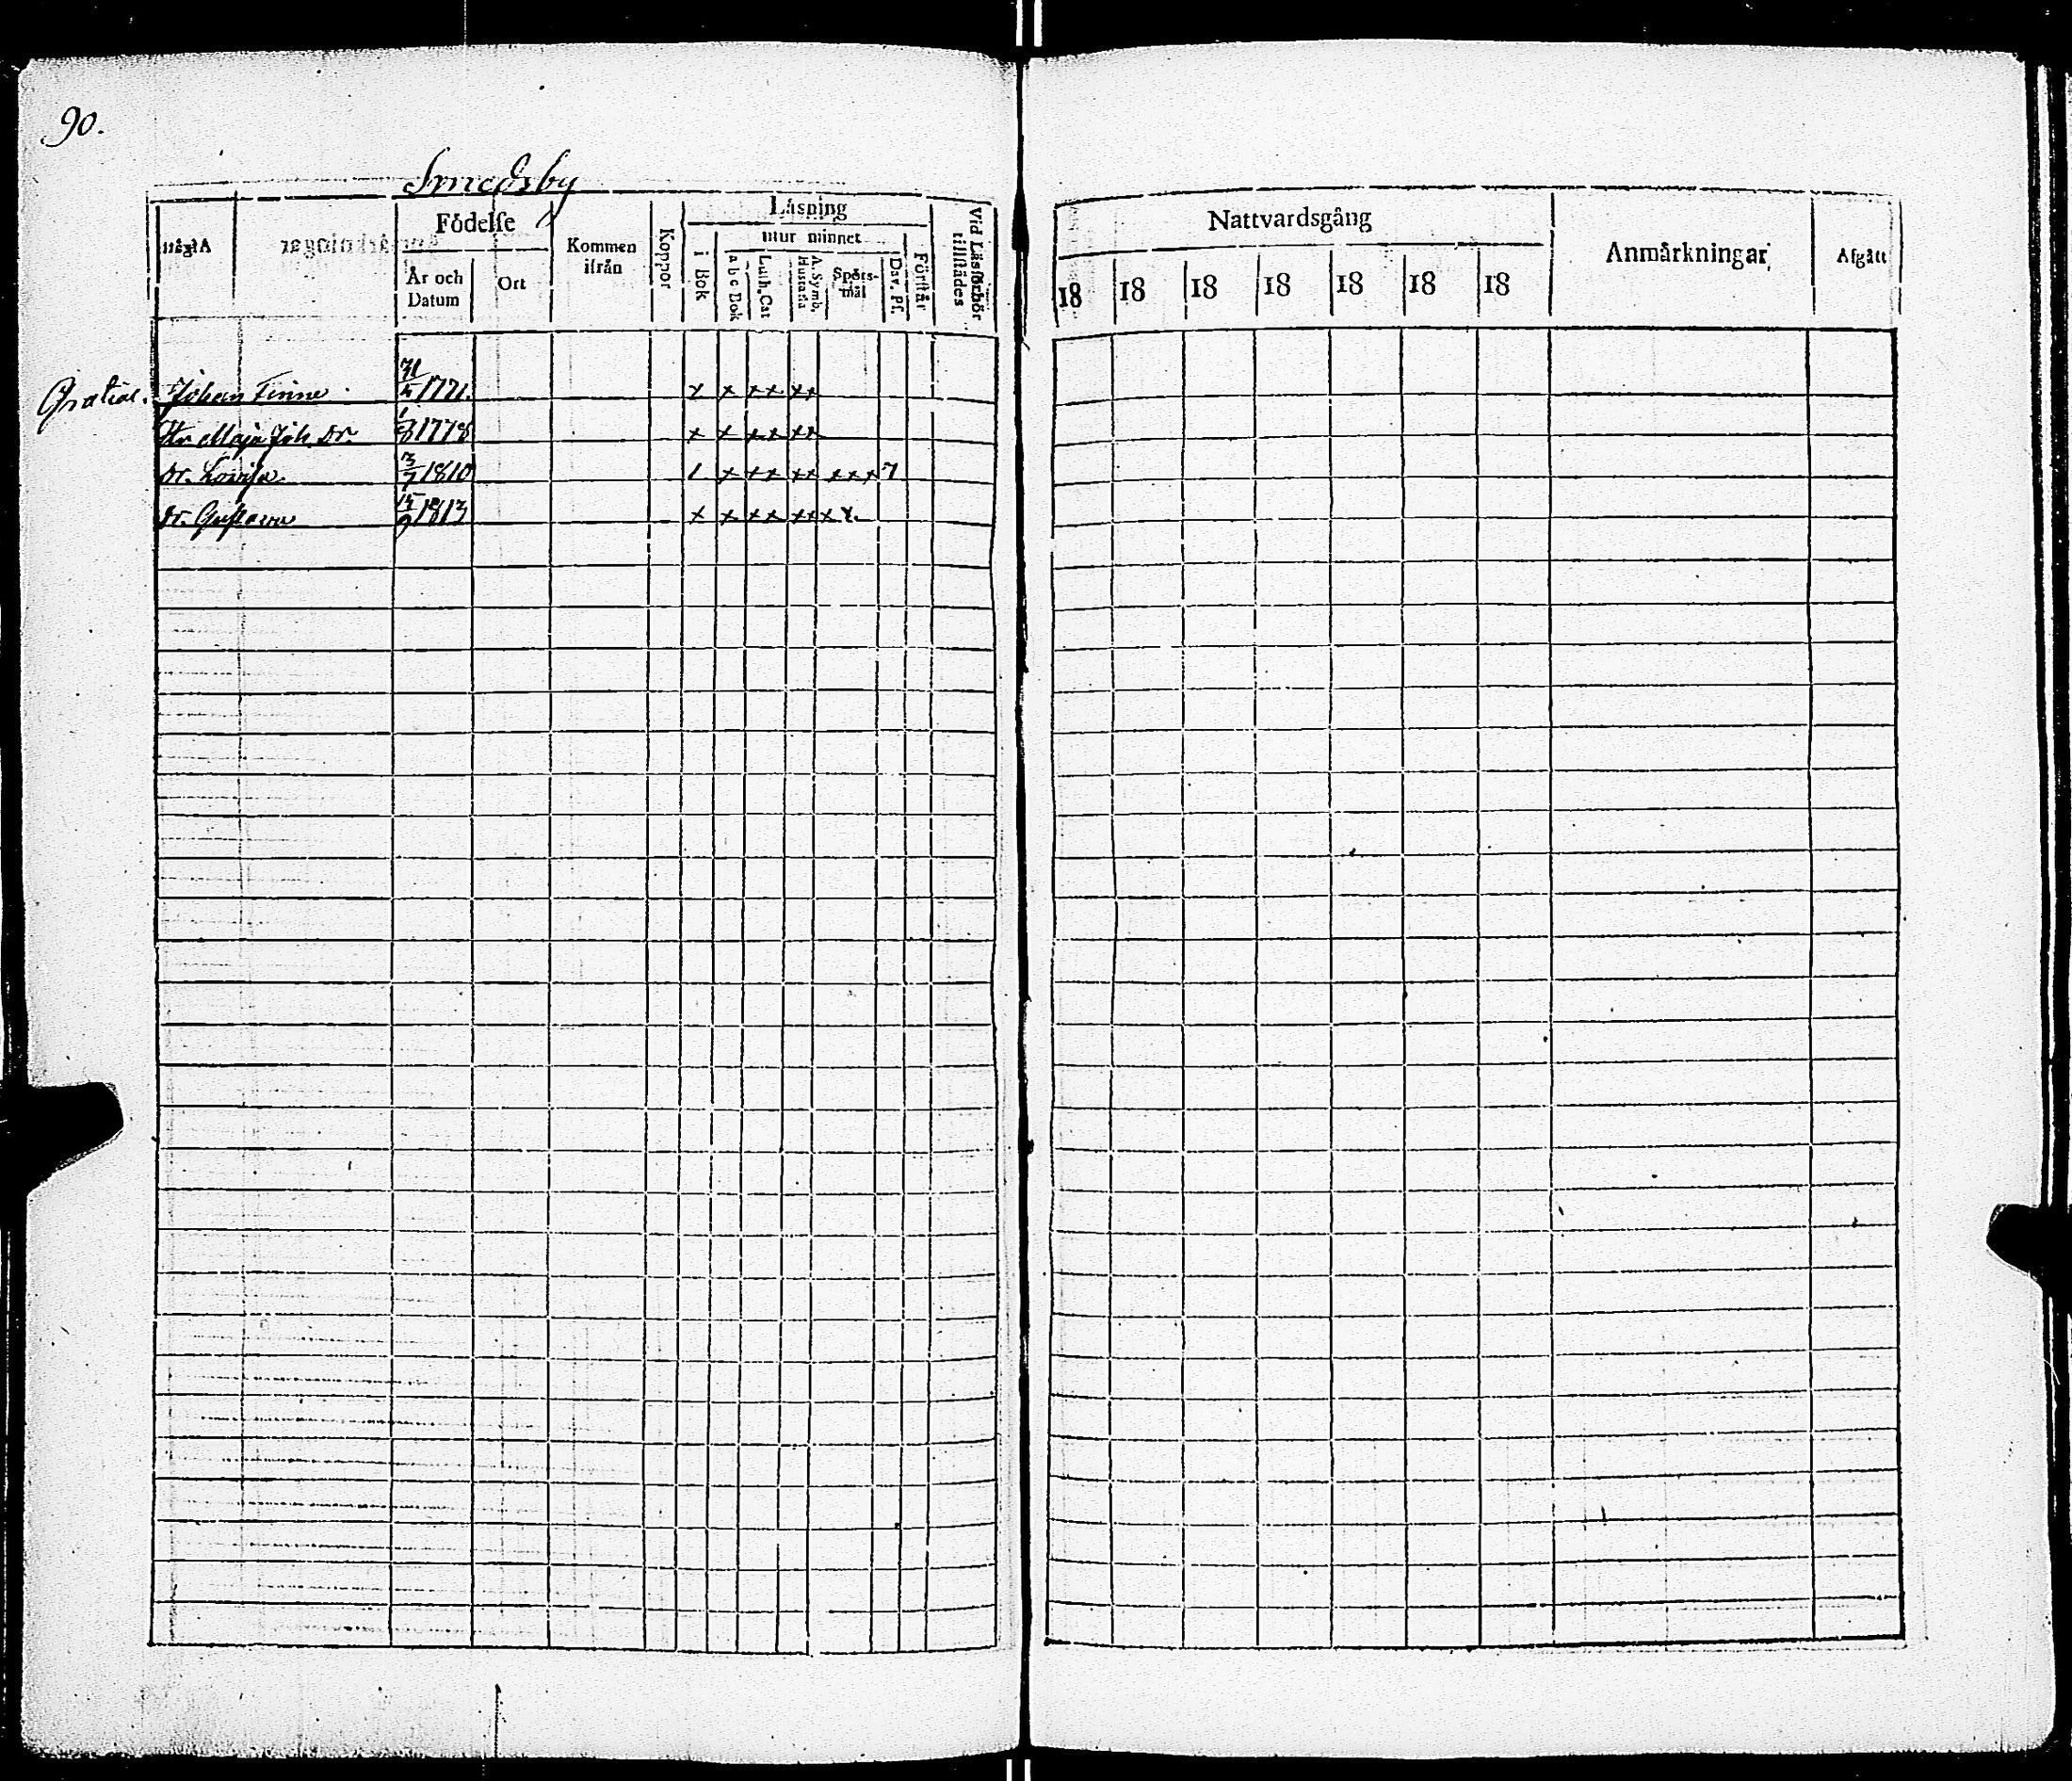 90.
Smedsby
Födelse
Kommen ifrån
Koppor
Läsning
i Bok
utur minnet
a b c Bok
Luth. Cat
A. Symb. Hustafla
Spörs-mål
Dav. Ps.
Förstår
Vid Läsförhör tillstädes
År och Datum
Ort
Nattvardsgång
18 18 18 18 18 18 18
Anmärkningar
Afgått
Gratial. Johan Finne 31/5 1771. x x xx xx
Hu Maja Joh. Dr. 1/8 1778 x x xx xx
Dr. Lovisa 3/7 1810 1 x xx xx xxx 7
Dr. Gustava 15/9 1813 x x xx xx xx